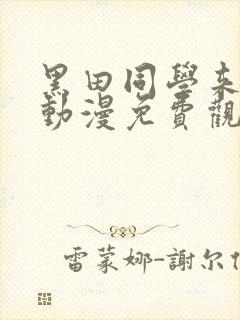 黑田同學來
動漫免費觀
雷蒙娜-謝尔